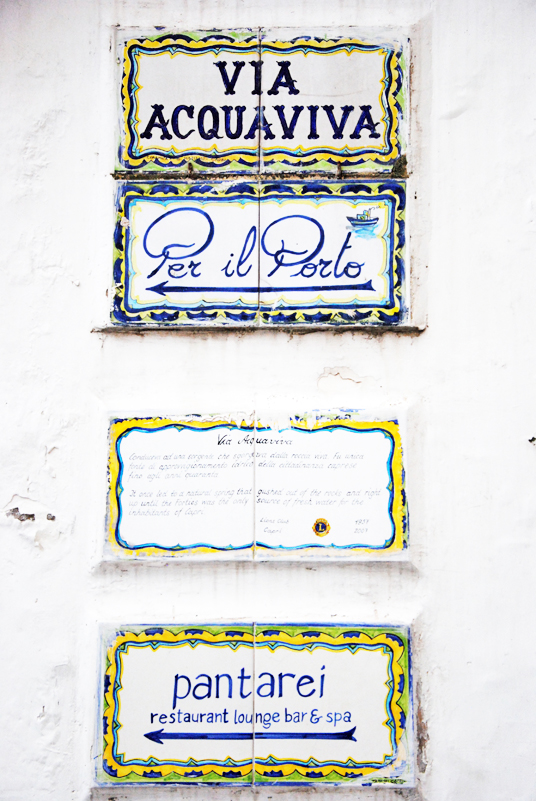 VIA
ACQUAVIVA
Per il Porto
Via Acquaviva
Conduceva ad una sorgente che sgorgava dalla roccia viva. Fu unica
fonte di approvvigionamento idrico della cittadinanza caprese
fino agli anni quaranta.
It once led to a natural spring that gushed out of the rocks and right
up until the Forties was the only source of fresh water for the
inhabitants of Capri.
Lions Club
Capri
L
pantarei
restaurant lounge bar & spa